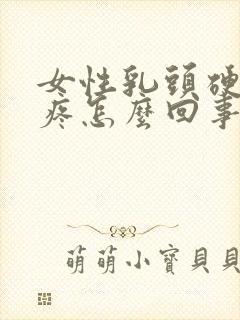 女性乳頭硬
疼怎麼回事
萌萌小寶貝貝